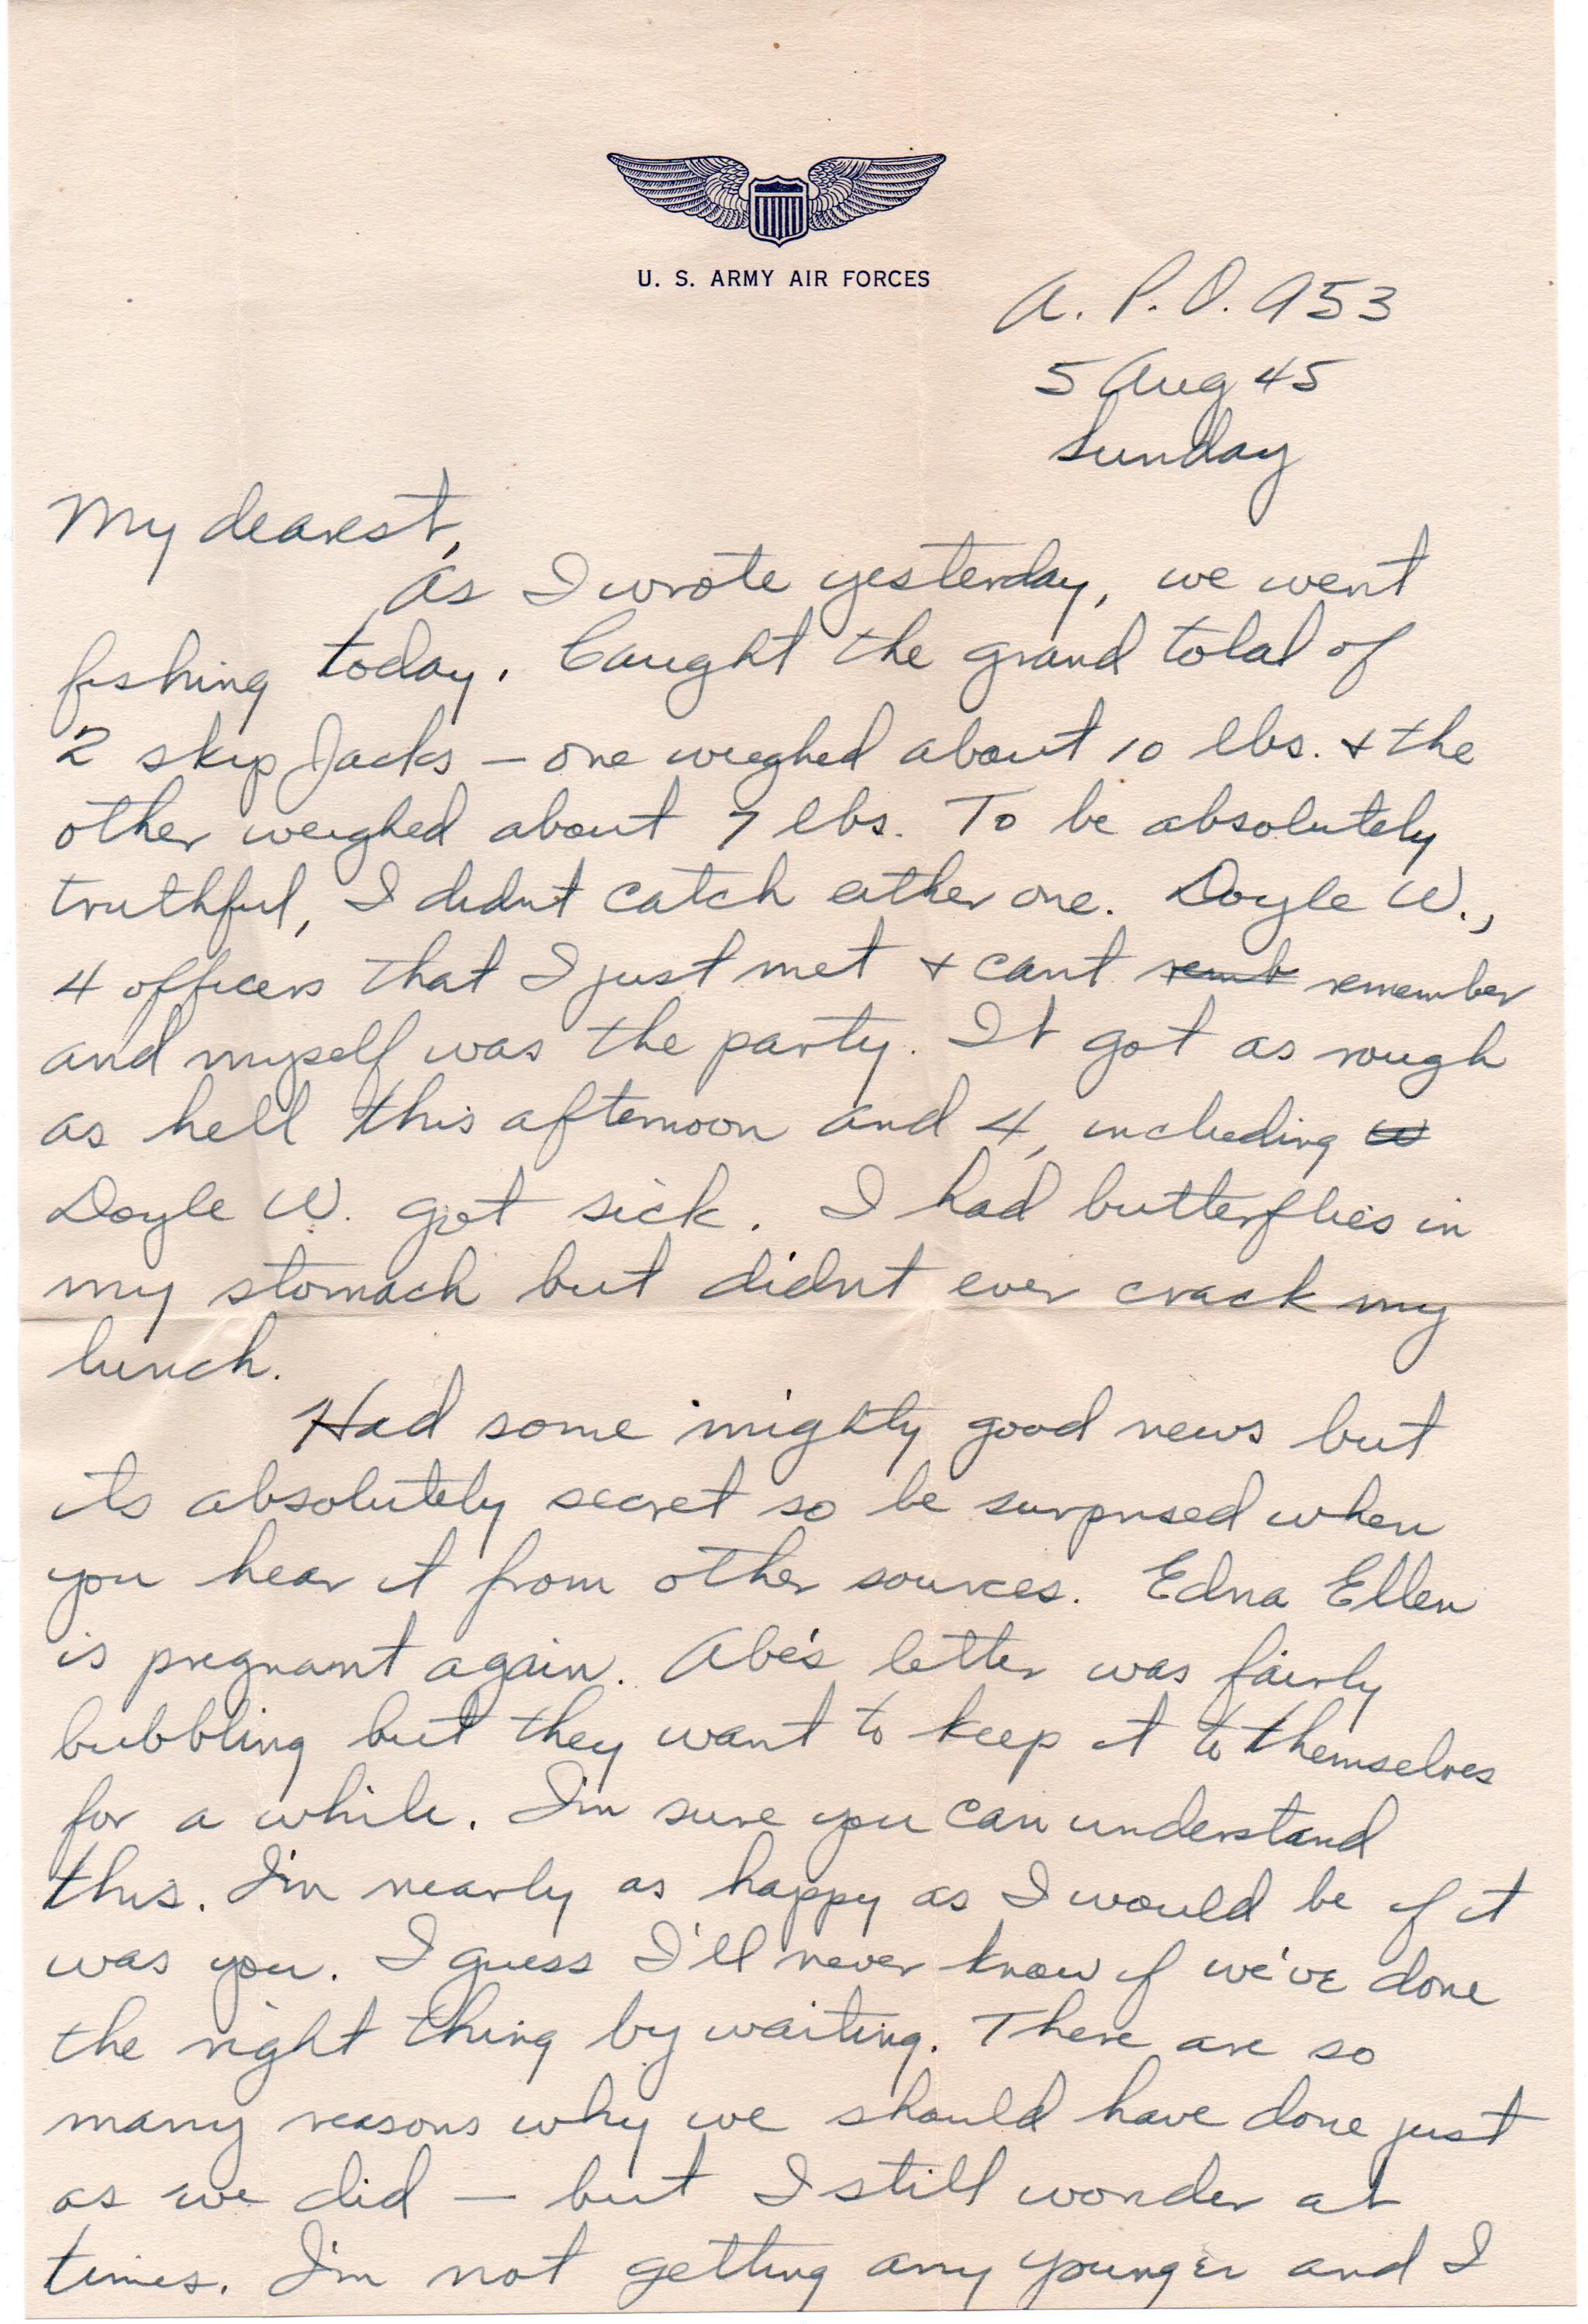 U. S. ARMY AIR FORCES
A. P. O. 953
5 Aug 45
Sunday
My dearest,
As I wrote yesterday, we went
fishing today. Caught the grand total of
2 skip Jacks — one weighed about 10 lbs. & the
other weighed about 7 lbs. To be absolutely
truthful, I didnt catch either one. Doyle W.,
4 officers that I just met & cant remb remember
and myself was the party. It got as rough
as hell this afternoon and 4, including w
Doyle W. got sick. I had butterflies in
my stomach but didnt ever crack my
lunch.
Had some mighty good news but
its absolutely secret so be surprised when
you hear it from other sources. Edna Ellen
is pregnant again. Abe's letter was fairly
bubbling but they want to keep it to themselves
for a while. I'm sure you can understand
this. I'm nearly as happy as I would be if it
was you. I guess I'll never know if we've done
the right thing by waiting. There are so
many reasons why we should have done just
as we did — but I still wonder at
times. I'm not getting any younger and I